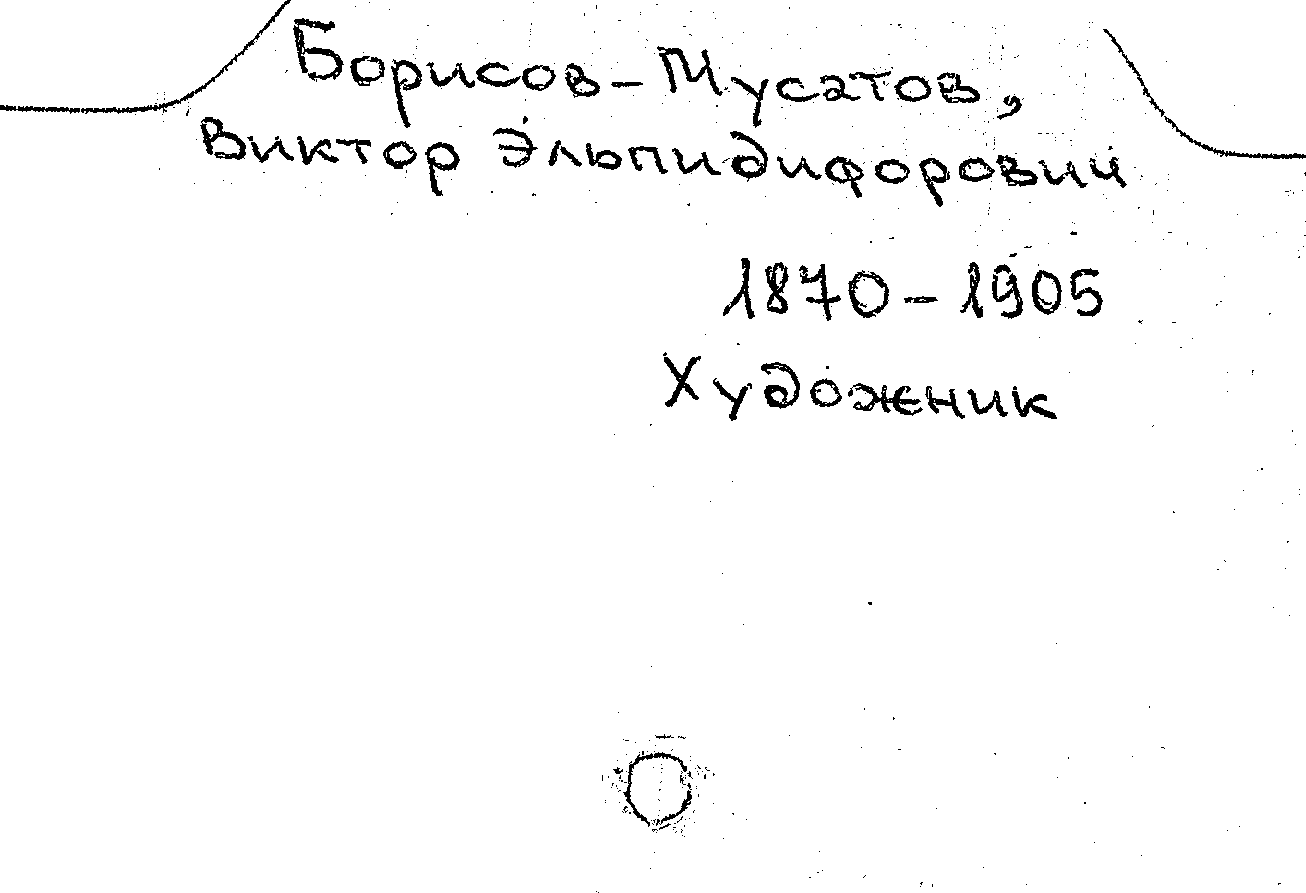 Борисов-Мусатов,
Виктор Эльпидифорович
1870-1905
Художник